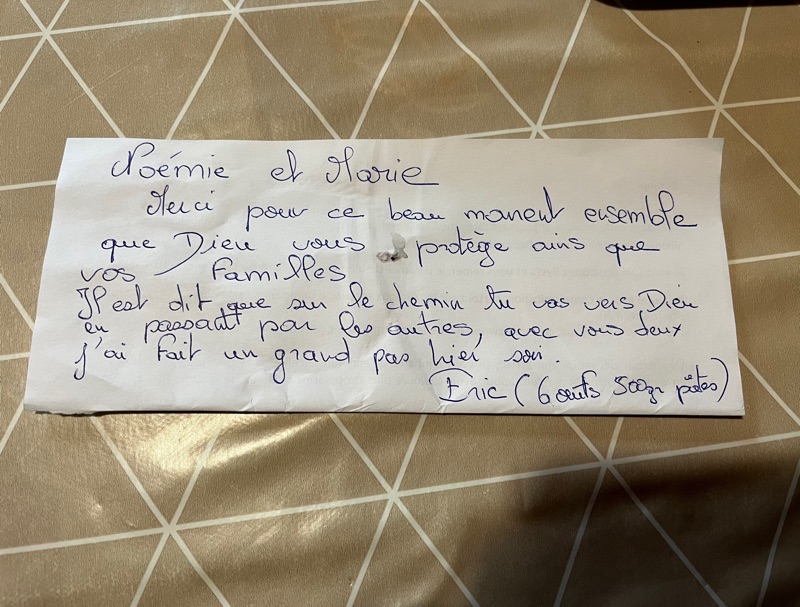 Noémie et Marie
Merci pour ce beau moment ensemble
que Dieu vous protège ains que
vos familles
Il est dit que sur le chemin tu vas vers Dieu
en passant par les autres, avec vous deux
j'ai fait un grand pas hier soir.
Eric (6 œufs 500gr pâtes)